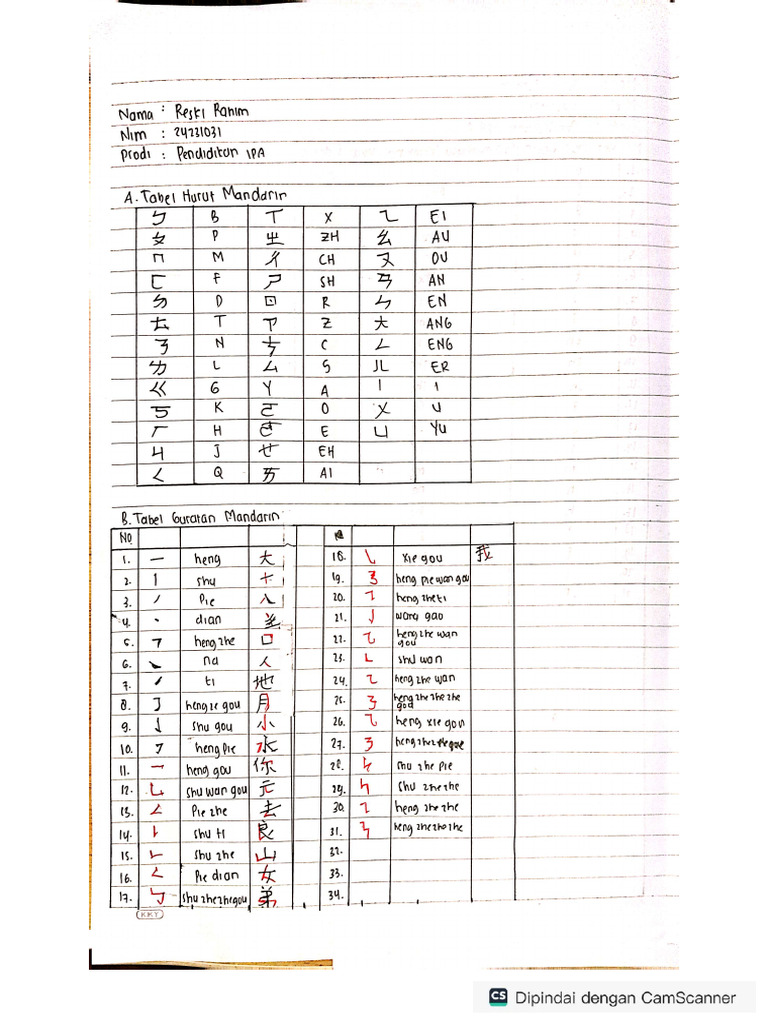 Nama : Reski Rahim
Nim : 24231031
Prodi : Pendidikan IPA
A. Tabel Huruf Mandarin
ㄅ B ㄒ X ㄟ EI
ㄆ P ㄓ ZH ㄠ AU
ㄇ M ㄔ CH ㄡ OU
ㄈ F ㄕ SH ㄢ AN
ㄉ D ㄖ R ㄣ EN
ㄊ T ㄗ Z ㄤ ANG
ㄋ N ㄘ C ㄥ ENG
ㄌ L ㄙ S ㄦ ER
ㄍ G ㄚ A ㄧ I
ㄎ K ㄛ O ㄨ U
ㄏ H ㄜ E ㄩ YU
ㄐ J ㄝ EH
ㄑ Q ㄞ AI
B. Tabel Guratan Mandarin
No
1. 一 heng 大 18. ㇂ xie gou 我
2. 丨 shu 十 19. ㇌ heng pie wan gou
3. ㇒ Pie 人 20. ㇊ heng zhe ti
4. ㇔ dian 21. ㇁ wang gao
5. ㇕ heng zhe 口 22. ㇈ heng zhe wan gou
6. ㇏ na 人 23. ㇄ shu wan
7. ㇀ ti 地 24. ㇍ heng zhe wan
8. ㇆ heng ze gou 月 25. ㇡ heng zhe zhe zhe god
9. ㇚ shu gou 小 26. ㇈ heng xie gon
10. ㇇ heng pie 水 27. ㇋
11. ㇖ heng gou 你 28. ㇉ shu zhe pie
12. ㇟ shu wan gou 元 29. ㇞ shu zhe zhe
13. ㇜ Pie zhe 去 30. ㇅ heng zhe zhe
14. ㇙ shu ti 良 31. ㇎ heng zhe zho zhe
15. ㇗ shu zhe 山 32.
16. ㇛ Pie dian 女 33.
17. ㇉ shu zhe zhe gou 弟 34.
KKY
CS Dipindai dengan CamScanner